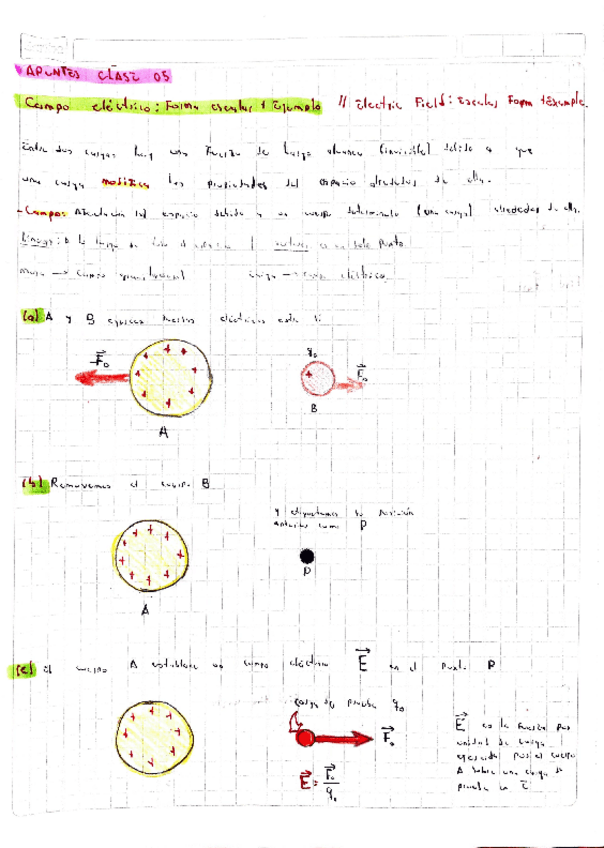 APUNTES CLASE 05
Campo eléctrico: Forma escalar + Ejemplo // Electric Field: Escalar Form + Example.
Entre dos cargas hay una Fuerza de largo alcance (invisible) debido a que
una carga modifica las propiedades del espacio alrededor de ella.
- Campo: del espacio debido a un cuerpo determinado (una carga) alrededor de ella.
a lo largo de un solo punto
masa → Campo gravitacional carga → campo eléctrico
(a) A y B ejercen fuerzas eléctricas entre sí
-F₀
q₀
F₀
B
A
(b) Removemos el cuerpo B
y etiquetamos su posición
anterior como P
P
A
(c) El cuerpo A establece un campo eléctrico E en el punto P
carga de prueba q₀
F₀
E = F₀/q₀
E es la fuerza por
unidad de carga
ejercida por el cuerpo
A sobre una carga de
prueba en